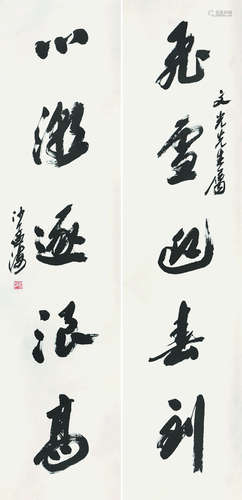 文光先生属
飛雪迎春到
心潮逐浪高
沙孟海